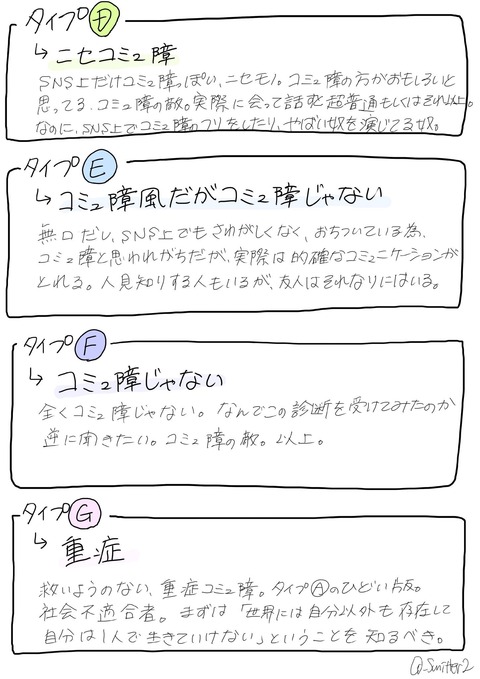 タイプⒹ
↳ニセコミュ障
SNS上だけコミュ障っぽい、ニセモノ。コミュ障の方がおもしろいと
思ってる、コミュ障の敵。実際に会って話すと超普通もしくはそれ以上。
なのに、SNS上でコミュ障のフリをしたり、やばい奴を演じてる奴。
タイプⒺ
↳コミュ障風だがコミュ障じゃない
無口だし、SNS上でもさわがしくなく、おちついている為、
コミュ障と思われがちだが、実際は的確なコミュニケーションが
とれる。人見知りする人もいるが、友人はそれなりにはいる。
タイプⒻ
↳コミュ障じゃない
全くコミュ障じゃない。なんでこの診断を受けてみたのか
逆に聞きたい。コミュ障の敵。以上。
タイプⒼ
↳重症
救いようのない、重症コミュ障。タイプⒶのひどい版。
社会不適合者。まずは「世界には自分以外も存在して
自分は1人で生きていけない」ということを知るべき。